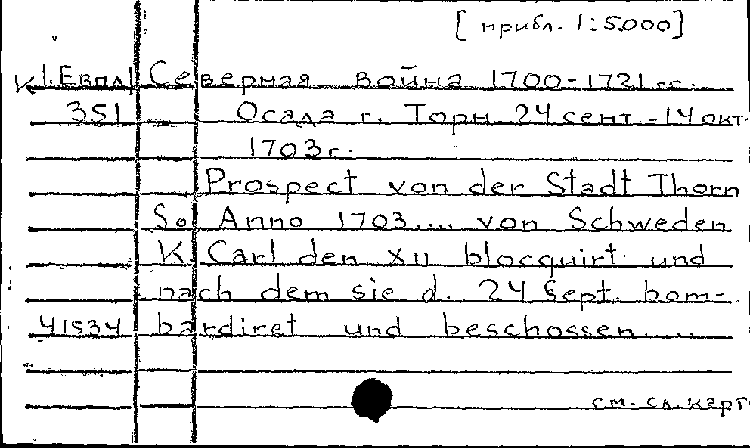 [прибл. 1:5000]
К 1. Евпл Северная война 1700-1721 гг.
351 Осада г. Торн 24 сент. - 14 окт.
1703 г.
Prospect von der Stadt Thorn
So Anno 1703.... von Schweden
K. Carl den XII blocquirt und
nach dem sie d. 24 Sept. bom-
41534 bardiret und beschossen...
см. сл. карт